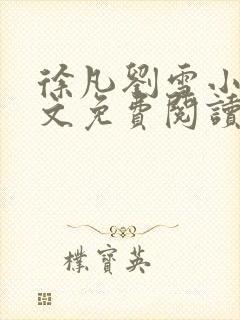 徐凡劉雪小
文免費閱讀
樸寶英